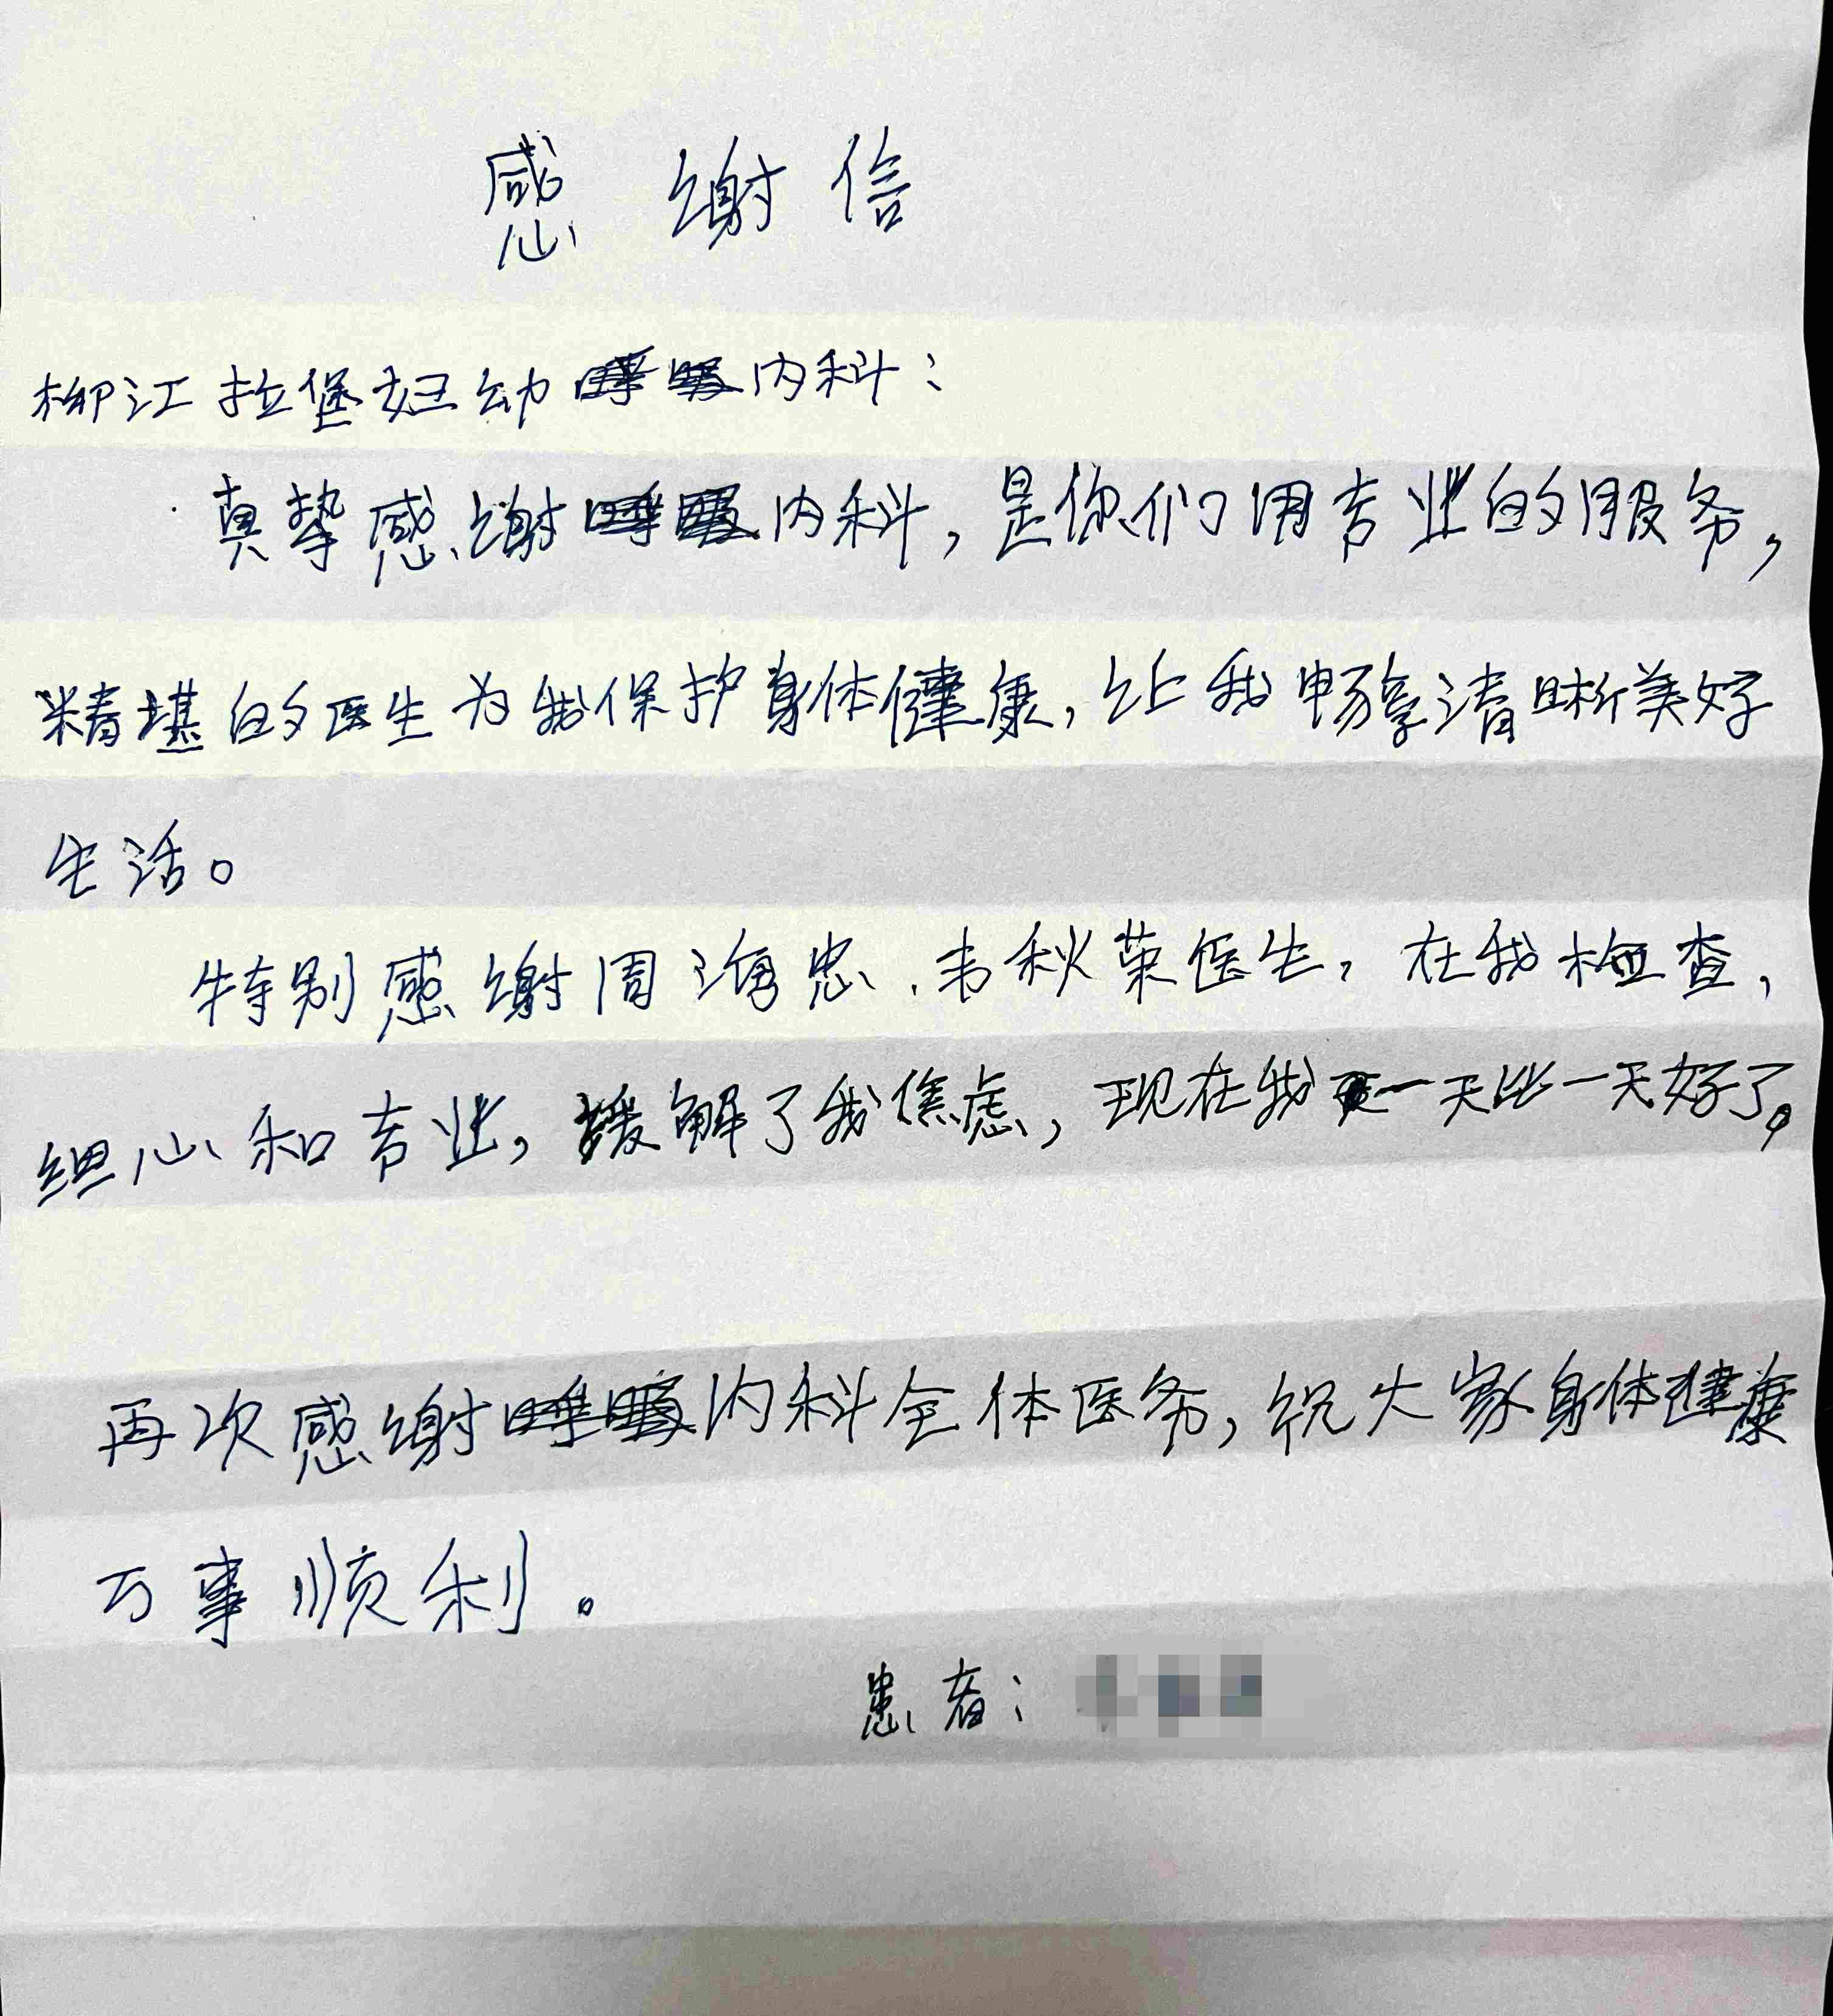 感谢信
柳江拉堡妇幼内科：
真挚感谢内科，是你们用专业的服务，
精堪的医生为我保护身体健康，让我畅享清晰美好
生活。
特别感谢周海忠、韦秋荣医生，在我检查，
细心和专业，缓解了我焦虑，现在我一天比一天好了。
再次感谢内科全体医务，祝大家身体健康
万事顺利。
患者：